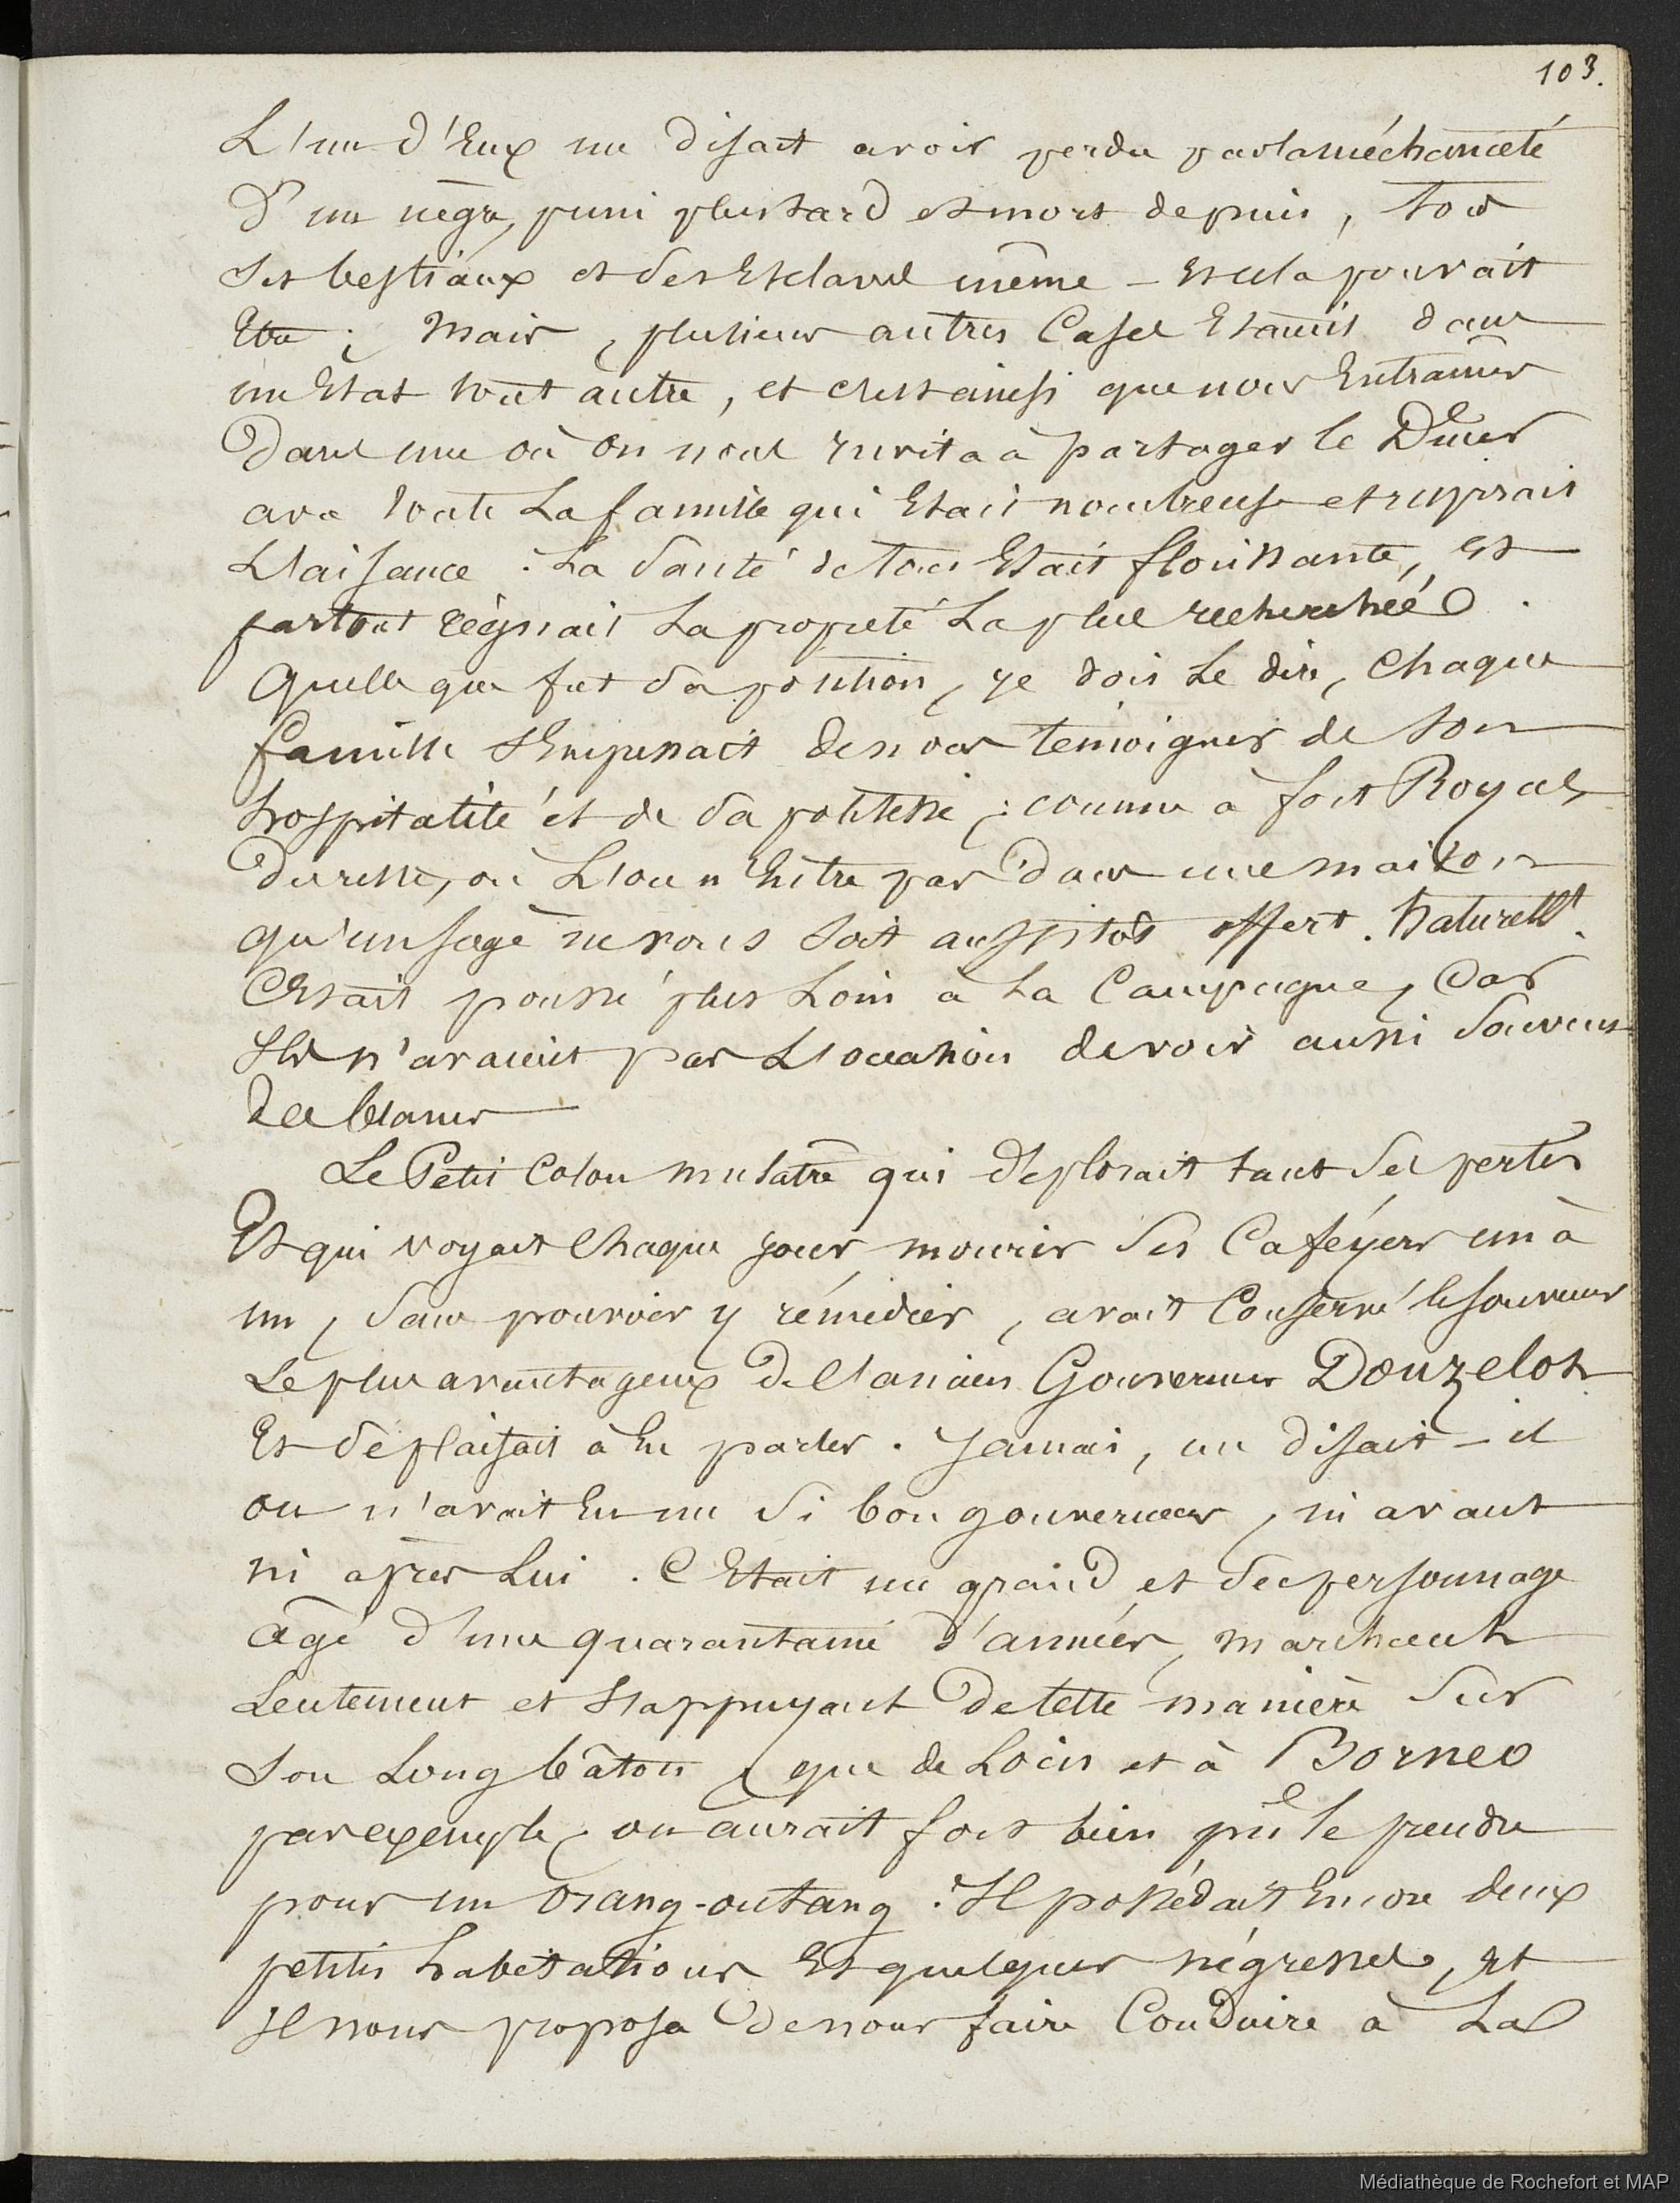 103.
L'un d'Eux me disait avoir perdu par la méchanceté
d'un nègre, puni plus tard et mort depuis, tous
ses bestiaux et des Esclaves même – et cela pouvait
Etre ; Mais, plusieurs autres Cases Etaient dans
un Etat tout autre, et c'est ainsi que nous Entrames
Dans une où on nous invita à partager le Diner
avec toute La famille qui Etait nombreuse et respirait
L'aisance . La Santé de tous Etait florissante, et
partout règnait La propreté La plus recherchée .
Quelle que fut Sa position, je dois Le dire, Chaque
famille s'Empressait de nous témoigner de Son
hospitalité et de Sa politesse ; comme à fort Royal,
Du reste, où L'on n'Entre pas Dans une maison
qu'un siège ne vous Soit aussitôt offert . Naturellt.
C'Etait poussé plus Loin à La Campagne, Car
Ils n'avaient pas L'occasion de voir aussi Souvent
des blancs
Le Petit Colon mulatre qui déplorait tant Ses pertes
Et qui voyait Chaque jour, mourir Ses Caféyers un à
un, Sans pouvoir y rémédier, avait Conservé le souvenir
Le plus avantageux De l'ancien Gouverneur Donzelot
Et Se plaisait à En parler . Jamais, me disait-il
on n'avait Eu un Si bon gouverneur, ni avant
ni après Lui . C'Etait un grand et Sec personnage
âgé d'une quarantaine d'années, marchant
Lentement et S'appuyant De telle manière Sur
Son Long bâton, que de Loin et à Borneo
par exemple, on aurait fort bien pu le prendre
pour un Orang-outang . Il possédait Encore deux
petites habitations Et quelques négresses, et
Il nous proposa De nous faire Conduire à La
Médiathèque de Rochefort et MAP